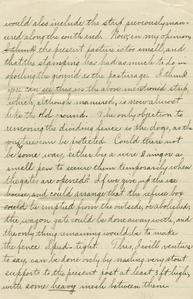 would also include the strip previously manur-
ed along the south end. Now in my opinion,
I think the present pasture is too small, and
that the stamping has had as much to do in
spoiling the ground as the pasturage. I think
you can see this on the above mentioned strip,
which, although manured, is now almost
like the old ground. The only objection to
removing the dividing fence is the dogs, as the
must be protected. Could there not
be some way, either by a wire
small pew to secure them temporarily when
the gates are opened? If we give up the ash
house and could arrange that the refuse box
could be emptied from the outside, or abolished,
the wagon gate could be done away with, and
the only thing remaining would be to make
the fence tight. This, I will venture
to say, can be done only by nailing very stout
supports to the present post at least 3 ft high,
with some heavy mesh between them